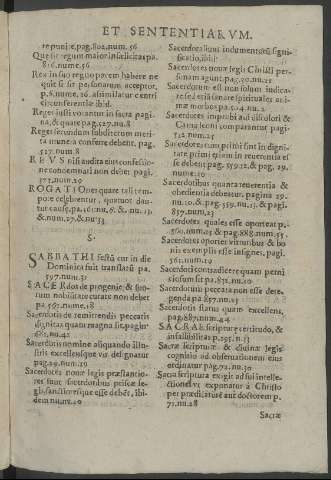 ET SENTENTIARVM.
re punire, pag. 802. num. 56
Que sit regum maior infelicitas pa.
816. num. 56
Rex in suo regno parem habere ne
quit
p. 6. num. 26. assimilatur centri
circumferentiæ ibid.
Reges iusti vocantur in sacra pagi
na, & quare pag. 527. nu. 8
Reges secundum subditorum meri
ta munera conferre debent. pag.
527. num. 8
REVS nisi audita eius confessione
non debet pag.
575. num. 20
ROGATIOnes quare tali tem-
pore celebrentur, quatuor
tur causæ, pa. 161. nu. 6. & nu. 13.
& num. 27. & nu. 33
S.
SABBATHI festū cur in die
Dominica fuit translatū pa.
597. num. 31
SACERdos de progenie, & suo-
rum nobilitate curare non debet
pa. 565. nume. 18
Sacerdotis de remittendis peccatis
dignitas quam magna sit. pagin.
682. nu. 42
Sacerdotis nomine aliquando illu-
stris excellensque vir designatur
pag. 29. num. 29
Sacerdotes nouæ legis præstantio-
res sunt sacerdotibus priscæ le-
gis, sanctioresque esse debēt, ibi-
dem nu. nu. 40
Sacerdotes
ficatio, ibid.
Sacerdotes nouæ legis Christi per-
sonam agunt pag. 30. nu. 22
Sacerdotum est non solum iudica-
re sed etiā sanare spirituales ani-
mæ morbos pa. 504. nu. 2
Sacerdotes improbi ad discolori &
Camæleoni comparantur pagi-
tatum. 25
Sacerdotes cum positi sint in digni-
tate primi etiam in reuerentia es
se debēt pag. 559. 12. & pag. 29.
nume. 20
Sacerdotibus quanta reuerentia &
obedientia debeatur. pagina 29.
nu. 20. & pag. 559. nu. 13. & pagi.
857. num. 25
Sacerdotes quales esse oporteat p.
560. num. 14. & pag. 888. num. 55
Sacerdotes oportet virtutibus & bo
nis exemplis esse insignes, pagi.
561. num. 29
Sacerdoti contradicere quam perni
ciosum sit pa. 831. nu. 20
Sacerdotis peccata non esse dete-
genda pa. 857. nu. 25
Sacerdotis status quam excellens,
pag. 887. num. 44
SACRAE scripturæ certitudo, &
infallibilitas p. 195. n. 13
Sacræ scripturæ & diuinæ legis
cognitio ad obseruationem eius
ordinatur pag. 72. nu. 30
Sacra scriptura exigit ad sui intelle-
ctionem vt exponatur a Christo
per prædicatorē aut doctorem p.
71. nu. 28
Sacræ